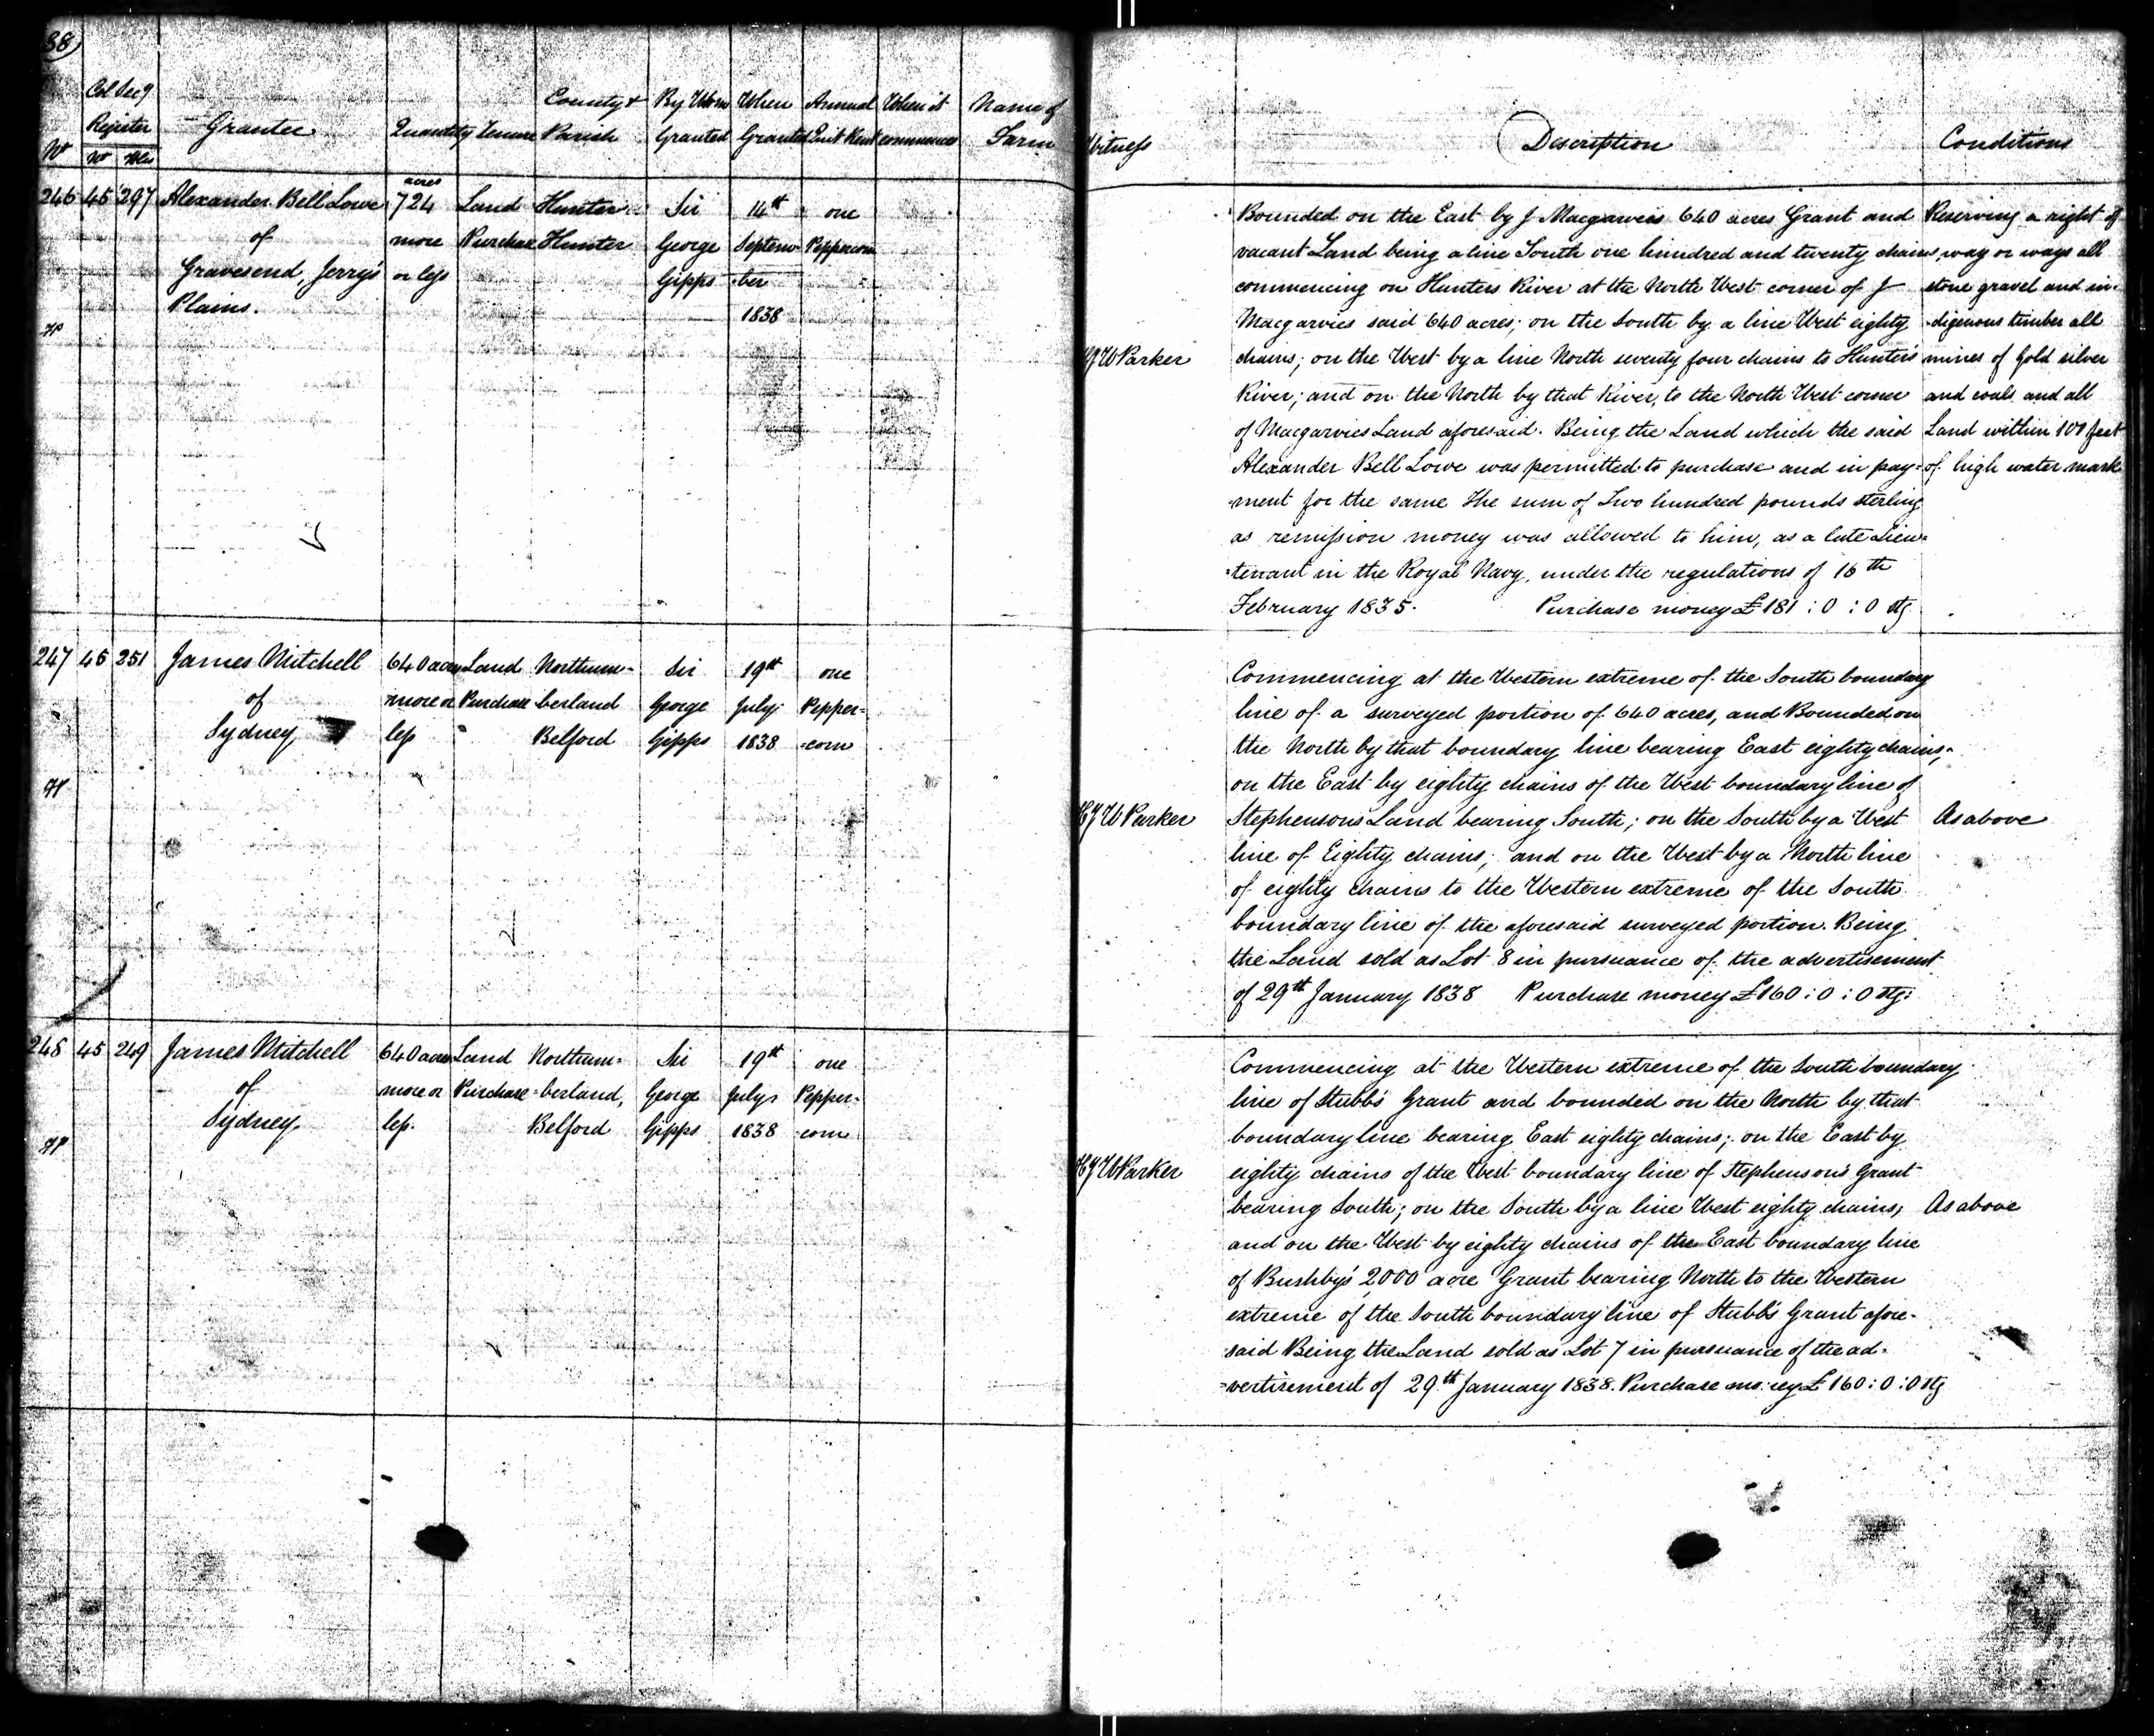 88)
Col Sec's
Register
No No Folio
Grantee
Quantity Tenure
County & Parish
By Whom Granted
When Granted
Annual Quit Rent
When it commences
Name of Farm
Witness
Description
Conditions
246 45 297 Alexander Bell Lowe
of
Gravesend, Jerry's
Plains.
acres
724
more
or less
Land
Purchase
Hunter
Hunter
Sir
George
Gipps
14th
Septem-
-ber
1838
one
Peppercorn
HJW Parker
Bounded on the East by J Macgarvies 640 acres Grant and
vacant Land being a line South one hundred and twenty chains
commencing on Hunters River at the North West corner of J
Macgarvies said 640 acres; on the South by a line West eighty
chains; on the West by a line North seventy four chains to Hunter's
River; and on the North by that River, to the North West corner
of Macgarvies Land aforesaid. Being the Land which the said
Alexander Bell Lowe was permitted to purchase and in pay=
=ment for the same the sum of Two hundred pounds sterling
as remission money was allowed to him, as a late Lieu=
=tenant in the Royal Navy, under the regulations of 16th
February 1835. Purchase money £181:0:0 Stg
Reserving a right of
way or ways all
stone gravel and in-
-digenous timber all
mines of Gold silver
and coals and all
Land within 100 feet
of high water mark
247 45 251 James Mitchell
of
Sydney
640 acres
more or
less
Land
Purchase
Northum-
berland
Belford
Sir
George
Gipps
19th
July
1838
one
Pepper=
=corn
HJW Parker
Commencing at the Western extreme of the South boundary
line of a surveyed portion of 640 acres, and Bounded on
the North by that boundary line bearing East eighty chains;
on the East by eighty chains of the West boundary line of
Stephensons Land bearing South; on the South by a West
line of Eighty chains; and on the West by a North line
of eighty chains to the Western extreme of the South
boundary line of the aforesaid surveyed portion. Being
the Land sold as Lot 8 in pursuance of the advertisement
of 29th January 1838 Purchase money £160:0:0 Stg:
As above
248 45 249 James Mitchell
of
Sydney
640 acres
more or
less.
Land
Purchase
Northum=
=berland,
Belford
Sir
George
Gipps
19th
July
1838
one
Pepper-
-corn
HJW Parker
Commencing at the Western extreme of the South boundary
line of Stubb's Grant and bounded on the North by that
boundary line bearing East eighty chains; on the East by
eighty chains of the West boundary line of Stephensons Grant
bearing South; on the South by a line West eighty chains;
and on the West by eighty chains of the East boundary line
of Bushby's 2,000 acre Grant bearing North to the Western
extreme of the South boundary line of Stubb's Grant afore-
said Being the Land sold as Lot 7 in pursuance of the ad-
=vertisement of 29th January 1838. Purchase money £160:0:0 Stg
As above